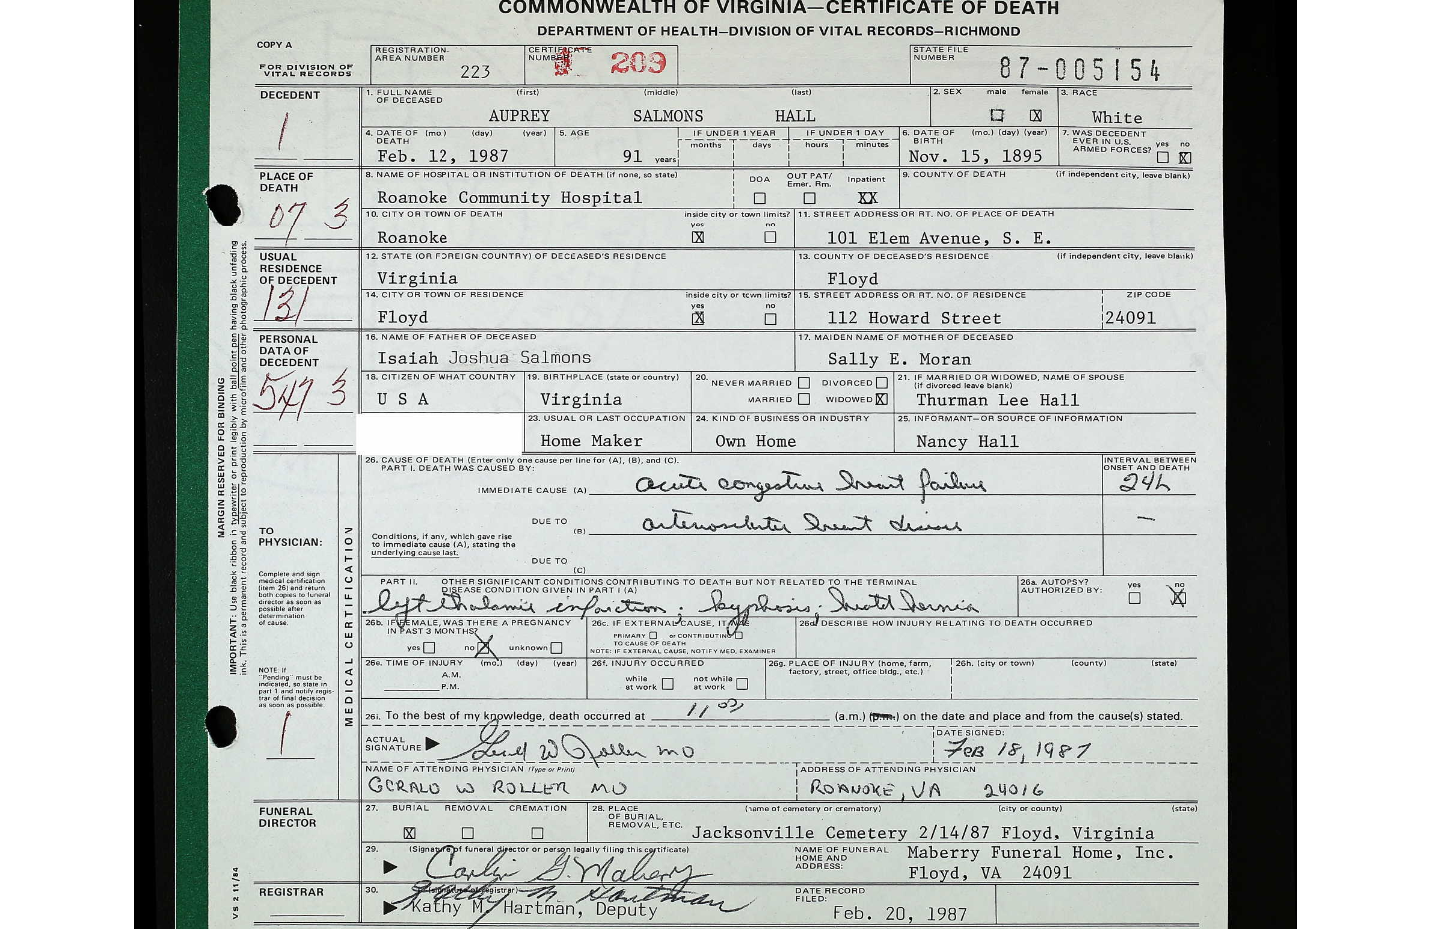 COMMONWEALTH OF VIRGINIA—CERTIFICATE OF DEATH
DEPARTMENT OF HEALTH—DIVISION OF VITAL RECORDS—RICHMOND
COPY A
FOR DIVISION OF VITAL RECORDS
REGISTRATION AREA NUMBER 223
CERTIFICATE NUMBER 209
STATE FILE NUMBER 87-005154
DECEDENT
1
1. FULL NAME OF DECEASED (first) (middle) (last)
AUPREY SALMONS HALL
2. SEX male female X
3. RACE White
4. DATE OF DEATH (mo) (day) (year) Feb. 12, 1987
5. AGE 91 years
IF UNDER 1 YEAR months days
IF UNDER 1 DAY hours minutes
6. DATE OF BIRTH (mo.) (day) (year) Nov. 15, 1895
7. WAS DECEDENT EVER IN U.S. ARMED FORCES? yes no X
PLACE OF DEATH
07 3
8. NAME OF HOSPITAL OR INSTITUTION OF DEATH (if none, so state)
Roanoke Community Hospital
DOA OUT PAT/ Emer. Rm. Inpatient XX
9. COUNTY OF DEATH (if independent city, leave blank)
10. CITY OR TOWN OF DEATH Roanoke
inside city or town limits? yes X no
11. STREET ADDRESS OR RT. NO. OF PLACE OF DEATH
101 Elem Avenue, S. E.
USUAL RESIDENCE OF DECEDENT
131
12. STATE (OR FOREIGN COUNTRY) OF DECEASED'S RESIDENCE
Virginia
13. COUNTY OF DECEASED'S RESIDENCE (if independent city, leave blank)
Floyd
14. CITY OR TOWN OF RESIDENCE Floyd
inside city or town limits? yes X no
15. STREET ADDRESS OR RT. NO. OF RESIDENCE
112 Howard Street
ZIP CODE 24091
PERSONAL DATA OF DECEDENT
547 3
16. NAME OF FATHER OF DECEASED
Isaiah Joshua Salmons
17. MAIDEN NAME OF MOTHER OF DECEASED
Sally E. Moran
18. CITIZEN OF WHAT COUNTRY U S A
19. BIRTHPLACE (state or country) Virginia
20. NEVER MARRIED DIVORCED
MARRIED WIDOWED X
21. IF MARRIED OR WIDOWED, NAME OF SPOUSE (if divorced leave blank)
Thurman Lee Hall
23. USUAL OR LAST OCCUPATION Home Maker
24. KIND OF BUSINESS OR INDUSTRY Own Home
25. INFORMANT—OR SOURCE OF INFORMATION Nancy Hall
MARGIN RESERVED FOR BINDING
IMPORTANT: Use black ribbon in typewriter or print legibly with ball point pen having black unfading ink. This is a permanent record and subject to reproduction by microfilm and other photographic process.
MEDICAL CERTIFICATION
TO PHYSICIAN:
Complete and sign medical certification (item 26) and return both copies to funeral director as soon as possible after determination of cause.
NOTE: If "Pending" must be indicated, so state in part 1 and notify registrar of final decision as soon as possible.
1
26. CAUSE OF DEATH (Enter only one cause per line for (A), (B), and (C).
PART I. DEATH WAS CAUSED BY:
INTERVAL BETWEEN ONSET AND DEATH
IMMEDIATE CAUSE (A) acute congestive heart failure 24h
DUE TO (B) heart disease —
Conditions, if any, which gave rise to immediate cause (A), stating the underlying cause last.
DUE TO (C)
PART II. OTHER SIGNIFICANT CONDITIONS CONTRIBUTING TO DEATH BUT NOT RELATED TO THE TERMINAL DISEASE CONDITION GIVEN IN PART I (A)
left thalamic infarction; kyphosis; hiatal hernia
26a. AUTOPSY? AUTHORIZED BY: yes no X
26b. IF FEMALE, WAS THERE A PREGNANCY IN PAST 3 MONTHS? yes no X unknown
26c. IF EXTERNAL CAUSE, IT WAS
PRIMARY or CONTRIBUTING
TO CAUSE OF DEATH
NOTE: IF EXTERNAL CAUSE, NOTIFY MED. EXAMINER
26d. DESCRIBE HOW INJURY RELATING TO DEATH OCCURRED
26e. TIME OF INJURY (mo.) (day) (year)
A.M.
P.M.
26f. INJURY OCCURRED
while at work not while at work
26g. PLACE OF INJURY (home, farm, factory, street, office bldg., etc.)
26h. (city or town) (county) (state)
26i. To the best of my knowledge, death occurred at 11 03 (a.m.) (p.m.) on the date and place and from the cause(s) stated.
ACTUAL SIGNATURE Gerald W Roller MD
DATE SIGNED: FEB 18, 1987
NAME OF ATTENDING PHYSICIAN (Type or Print)
GERALD W ROLLER MD
ADDRESS OF ATTENDING PHYSICIAN
ROANOKE, VA 24016
FUNERAL DIRECTOR
27. BURIAL REMOVAL CREMATION
X
28. PLACE OF BURIAL, REMOVAL, ETC. (name of cemetery or crematory) (city or county) (state)
Jacksonville Cemetery 2/14/87 Floyd, Virginia
29. (Signature of funeral director or person legally filing this certificate)
NAME OF FUNERAL HOME AND ADDRESS:
Maberry Funeral Home, Inc.
Floyd, VA 24091
REGISTRAR
30. (signature of registrar)
Kathy M. Hartman
Kathy M. Hartman, Deputy
DATE RECORD FILED: Feb. 20, 1987
VS 2 11/84